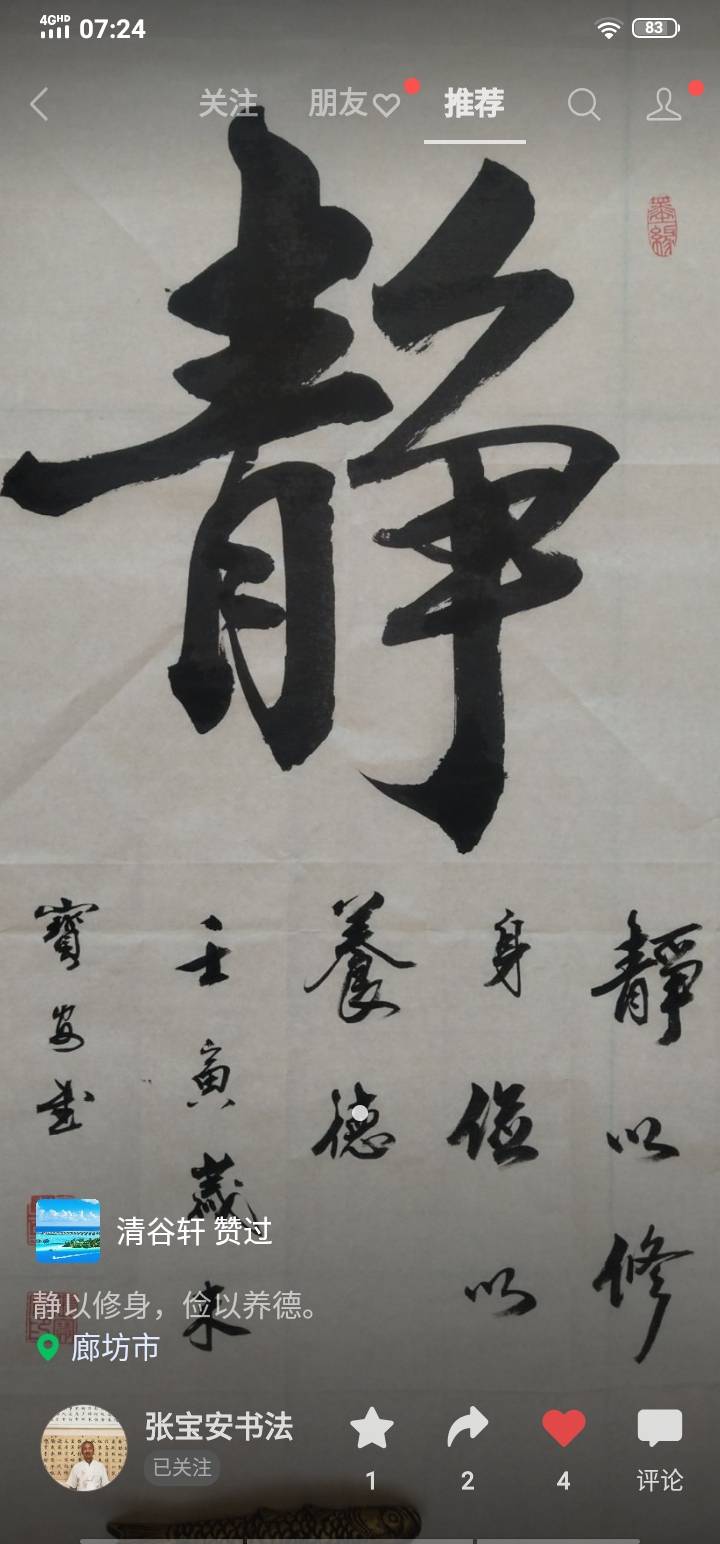 4GHD 07:24 83
关注 朋友 推荐
墨缘
静
静以修
身俭以
养德
壬寅岁末
寶安書
清谷轩 赞过
静以修身，俭以养德。
廊坊市
张宝安书法
已关注
1 2 4 评论